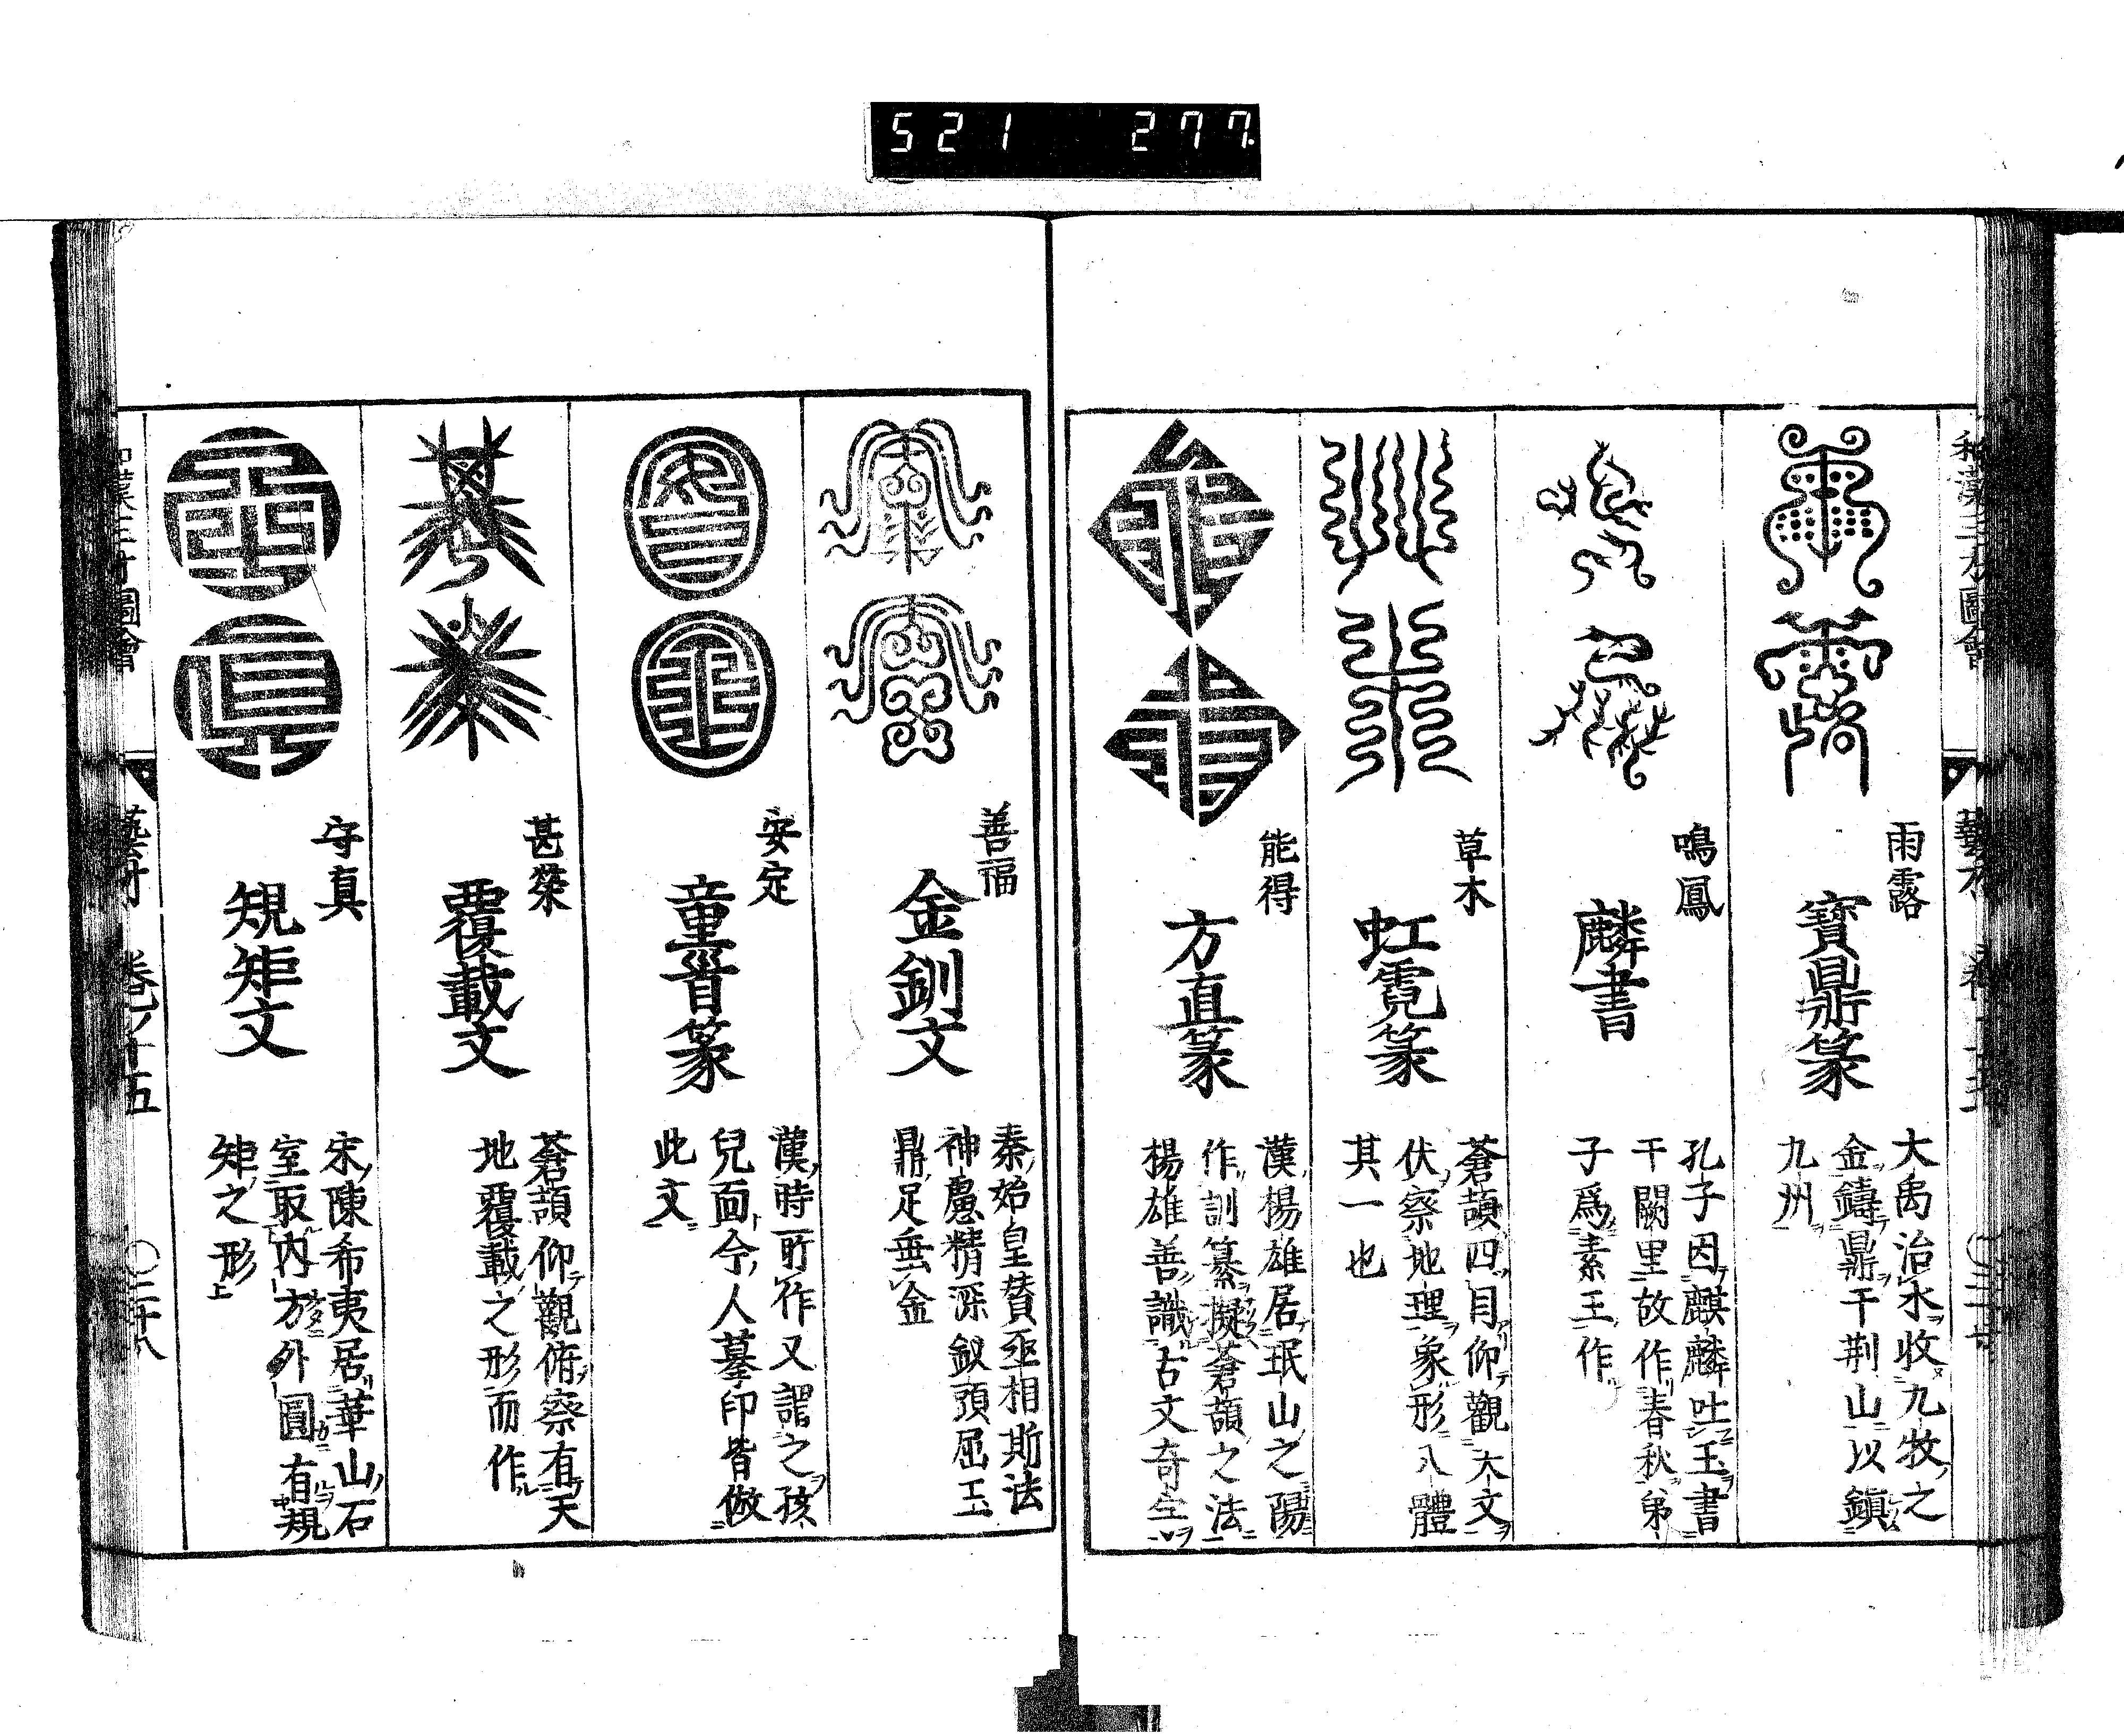 521 277
和漢三才圖會
藝才
雨露
寶鼎篆
大禹治水收九牧之
金鑄鼎于荆山以鎮
九州
鳴鳳
麟書
孔子因麒麟吐玉書
于闕里故作春秋弟
子爲素王作
草木
虹霓篆
蒼頡四目仰觀大文
伏察地理象形八體
其一也
能得
方直篆
漢楊雄居珉山之陽
作訓纂擬蒼頡之法
楊雄善識古文奇字
善福
金釧文
秦始皇賛丞相斯法
神慮精深釵頭屈玉
鼎足垂金
安定
童晉篆
漢時所作又謂之孩
兒面今人摹印皆倣
此文
甚榮
覆載文
蒼頡仰觀俯察有天
地覆載之形而作
守真
規矩文
宋陳希夷居華山石
室取内方外圓有規
矩之形
和漢三才圖會
藝才
卷ノ十五
〇二十八